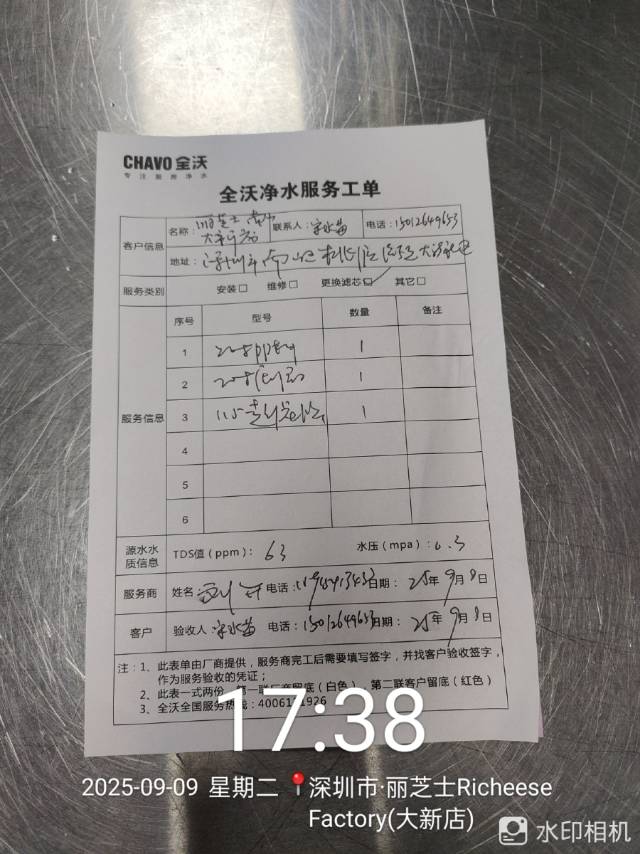 CHAVO 全沃
专注厨房净水
全沃净水服务工单
客户信息
名称：丽芝士 南山 大新店 联系人：宋水苗 电话：15012649653
地址：深圳市南山区
服务类别 安装□ 维修□ 更换滤芯□ 其它□
服务信息
序号 型号 数量 备注
1 1
2 1
3 1
4
5
6
源水水质信息 TDS值（ppm）：63 水压（mpa）：0.3
服务商 姓名 电话： 日期：25年9月9日
客户 验收人：宋水苗 电话：15012649653 日期：25年9月9日
注：1、此表单由厂商提供，服务商完工后需要填写签字，并找客户验收签字，
作为服务验收的凭证；
2、此表一式两份，第一联厂商留底（白色），第二联客户留底（红色）
3、全沃全国服务热线：4006 1926
17:38
2025-09-09 星期二 深圳市·丽芝士Richeese
Factory(大新店)
水印相机